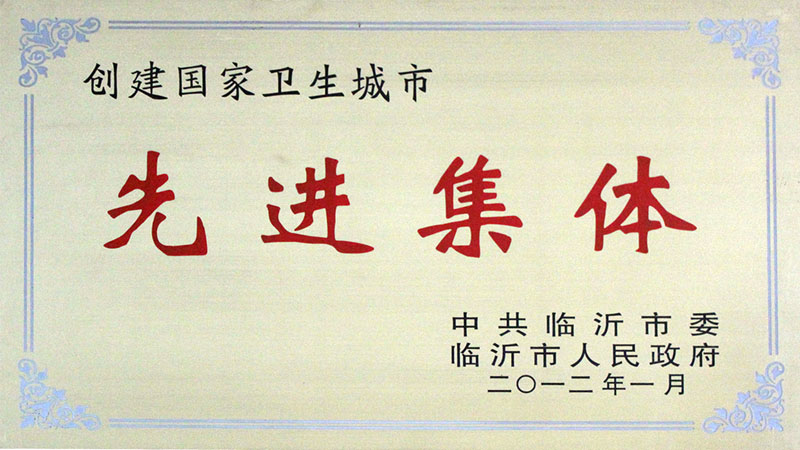 创建国家卫生城市
先进集体
中共临沂市委
临沂市人民政府
二〇一二年一月